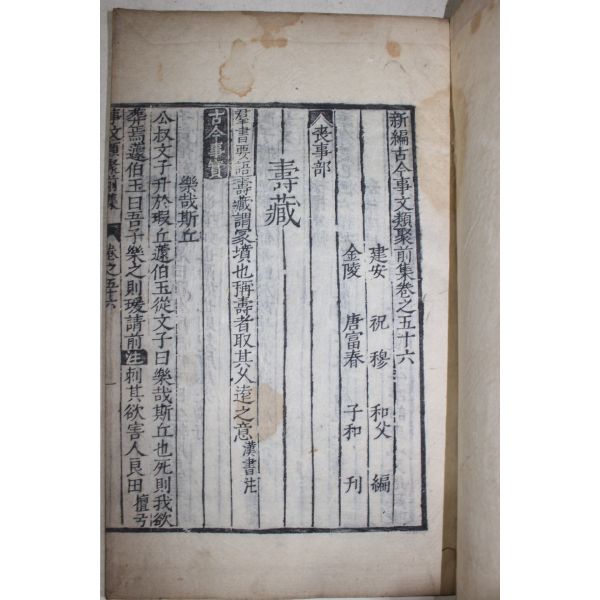 新編古今事文類聚前集卷之五十六
建安　祝穆　和父　編
金陵　唐富春　子和　刊
喪事部
壽藏
羣書要語壽藏謂冢墳也稱壽者取其久遠之意漢書注
古今事實
樂哉斯丘
公叔文子升於瑕丘蘧伯玉從文子曰樂哉斯丘也死則我欲
葬焉蘧伯玉曰吾子樂之則瑗請前注刺其欲害人良田檀弓
事文類聚前集　卷之五十六